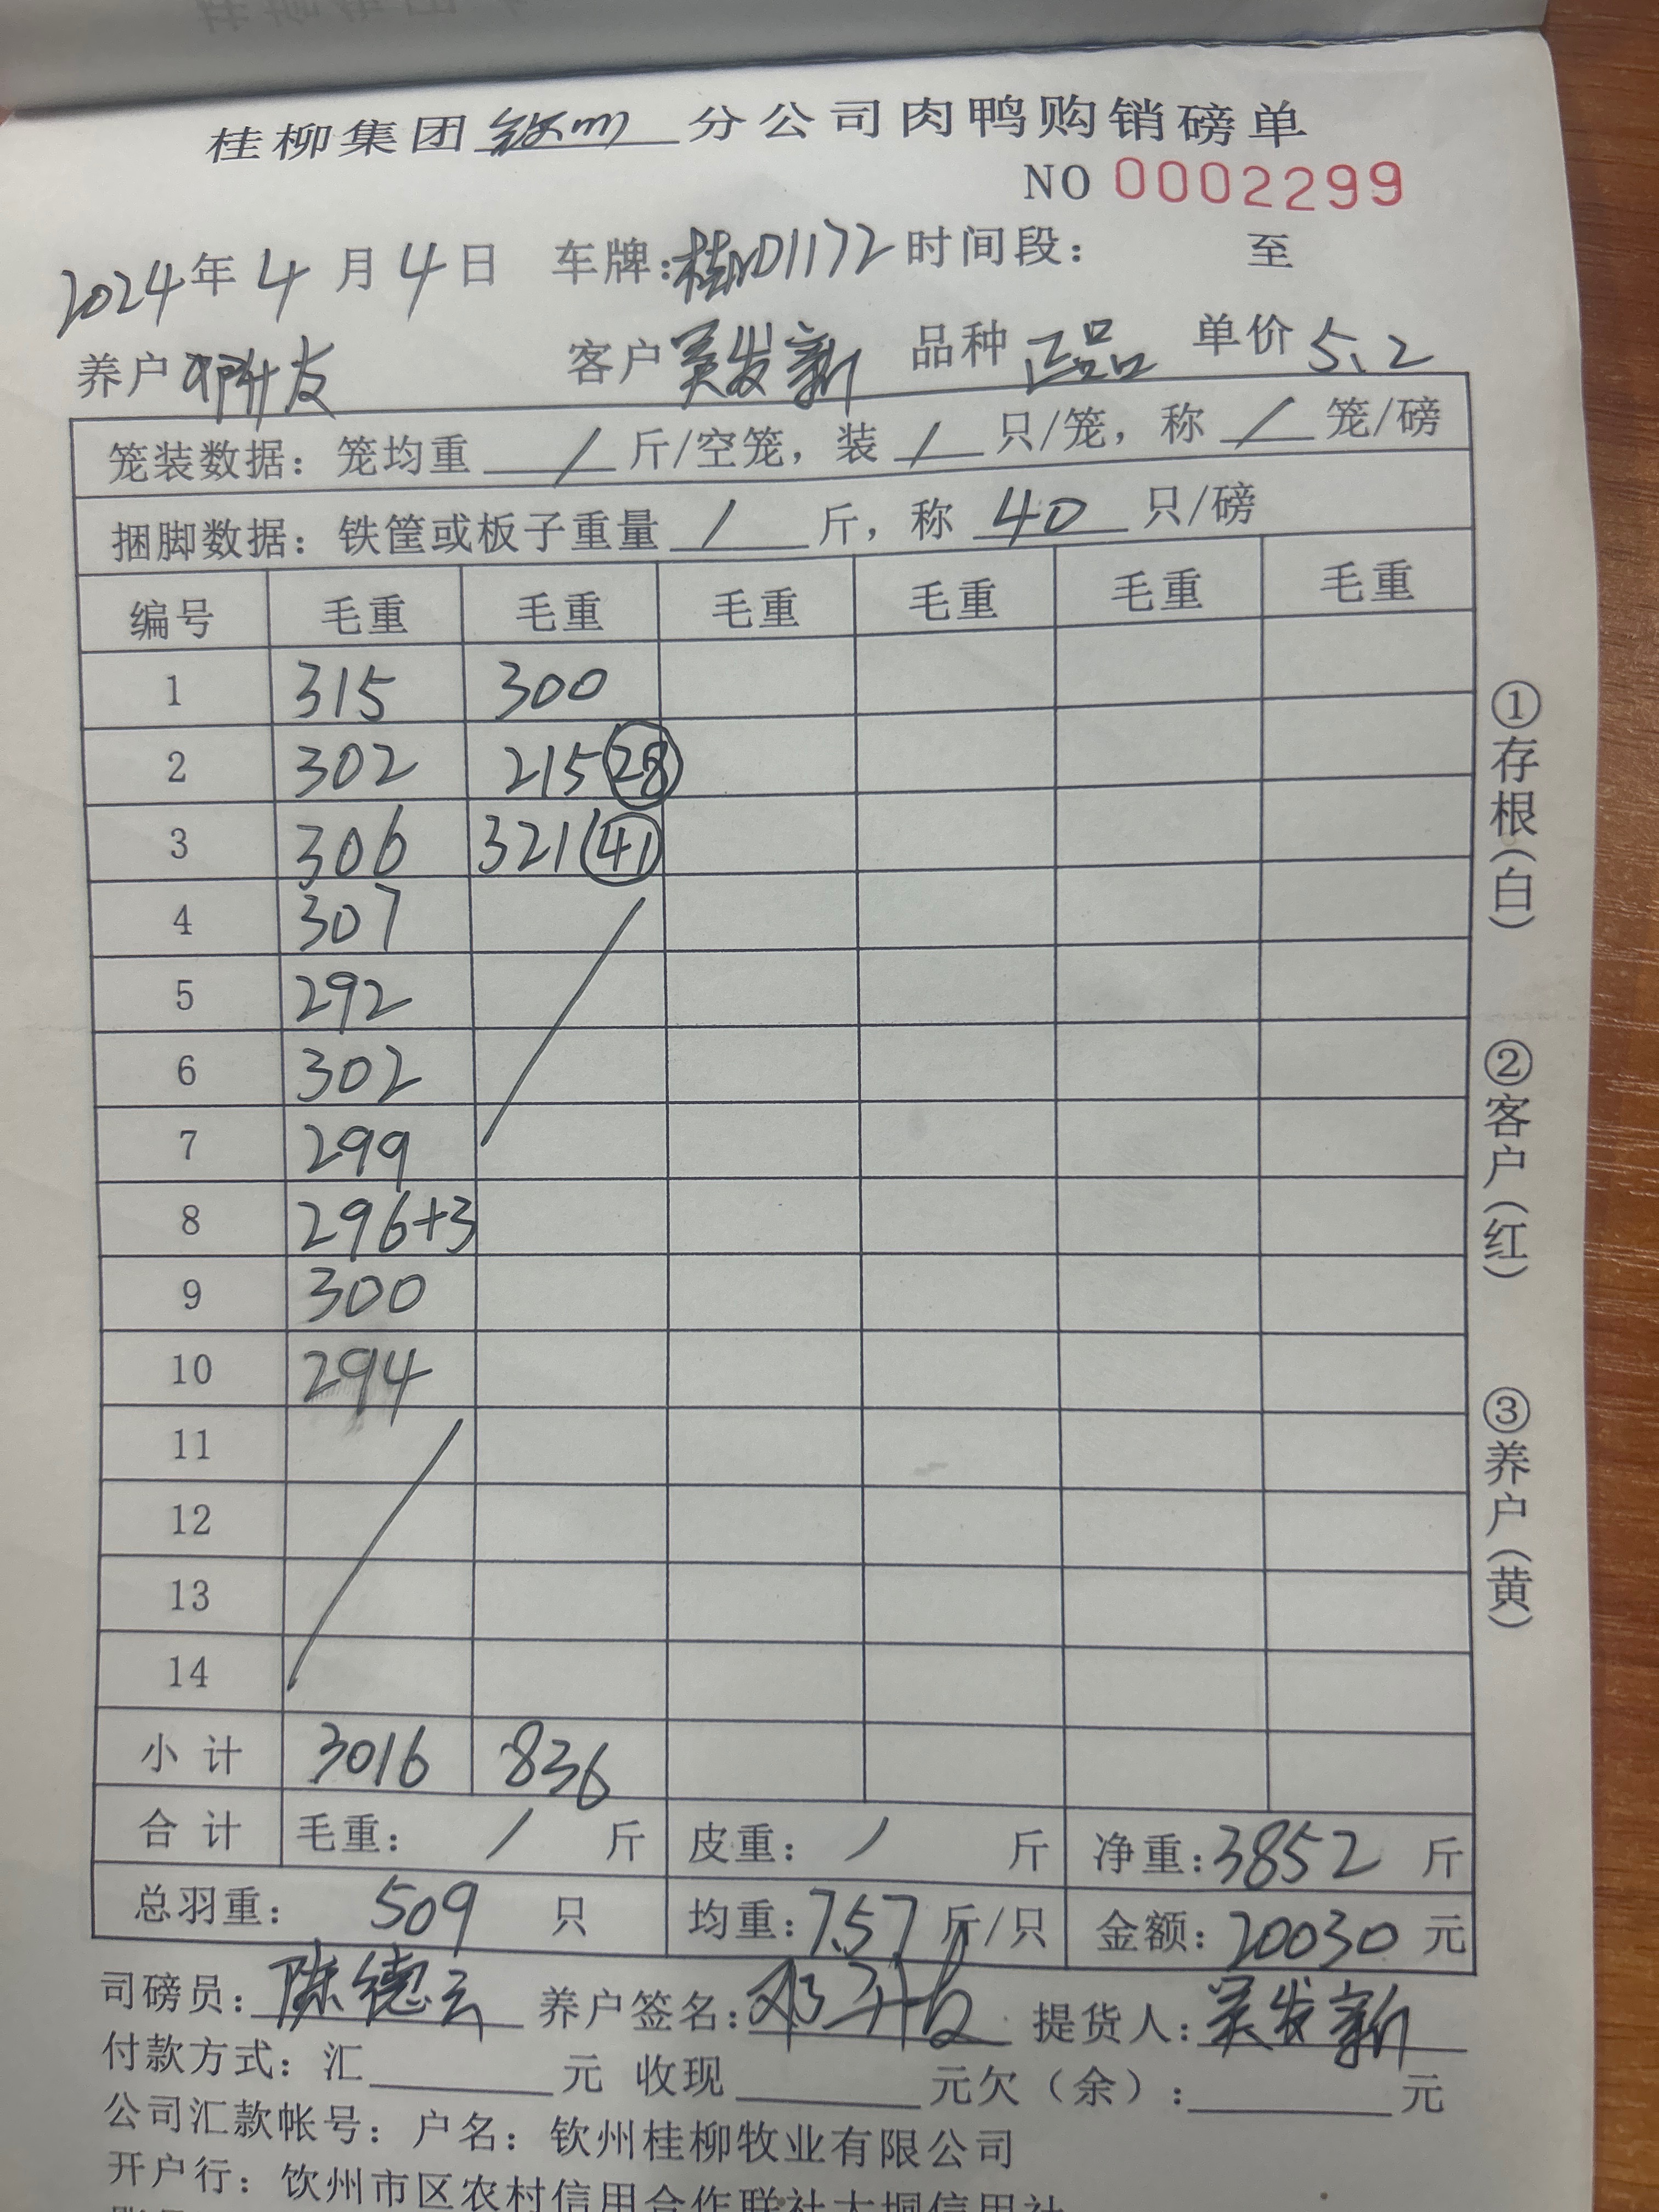 桂柳集团钦州分公司肉鸭购销磅单
NO 0002299
2024年4月4日 车牌:桂N01172 时间段: 至
养户 邓升友 客户 吴发新 品种 正品 单价 5.2
笼装数据: 笼均重 / 斤/空笼, 装 / 只/笼, 称 / 笼/磅
捆脚数据: 铁筐或板子重量 / 斤, 称 40 只/磅
编号 毛重 毛重 毛重 毛重 毛重 毛重
1 315 300
2 302 215 28
3 306 321 41
4 307
5 292
6 302
7 299
8 296+3
9 300
10 294
11
12
13
14
小计 3016 836
合计 毛重: / 斤 皮重: / 斤 净重: 3852 斤
总羽重: 509 只 均重: 7.57 斤/只 金额: 20030 元
司磅员: 陈德云 养户签名: 邓升友 提货人: 吴发新
付款方式: 汇 元 收现 元欠(余): 元
公司汇款帐号: 户名: 钦州桂柳牧业有限公司
开户行: 钦州市区农村信用合作联社大垌信用社
①存根(白)
②客户(红)
③养户(黄)